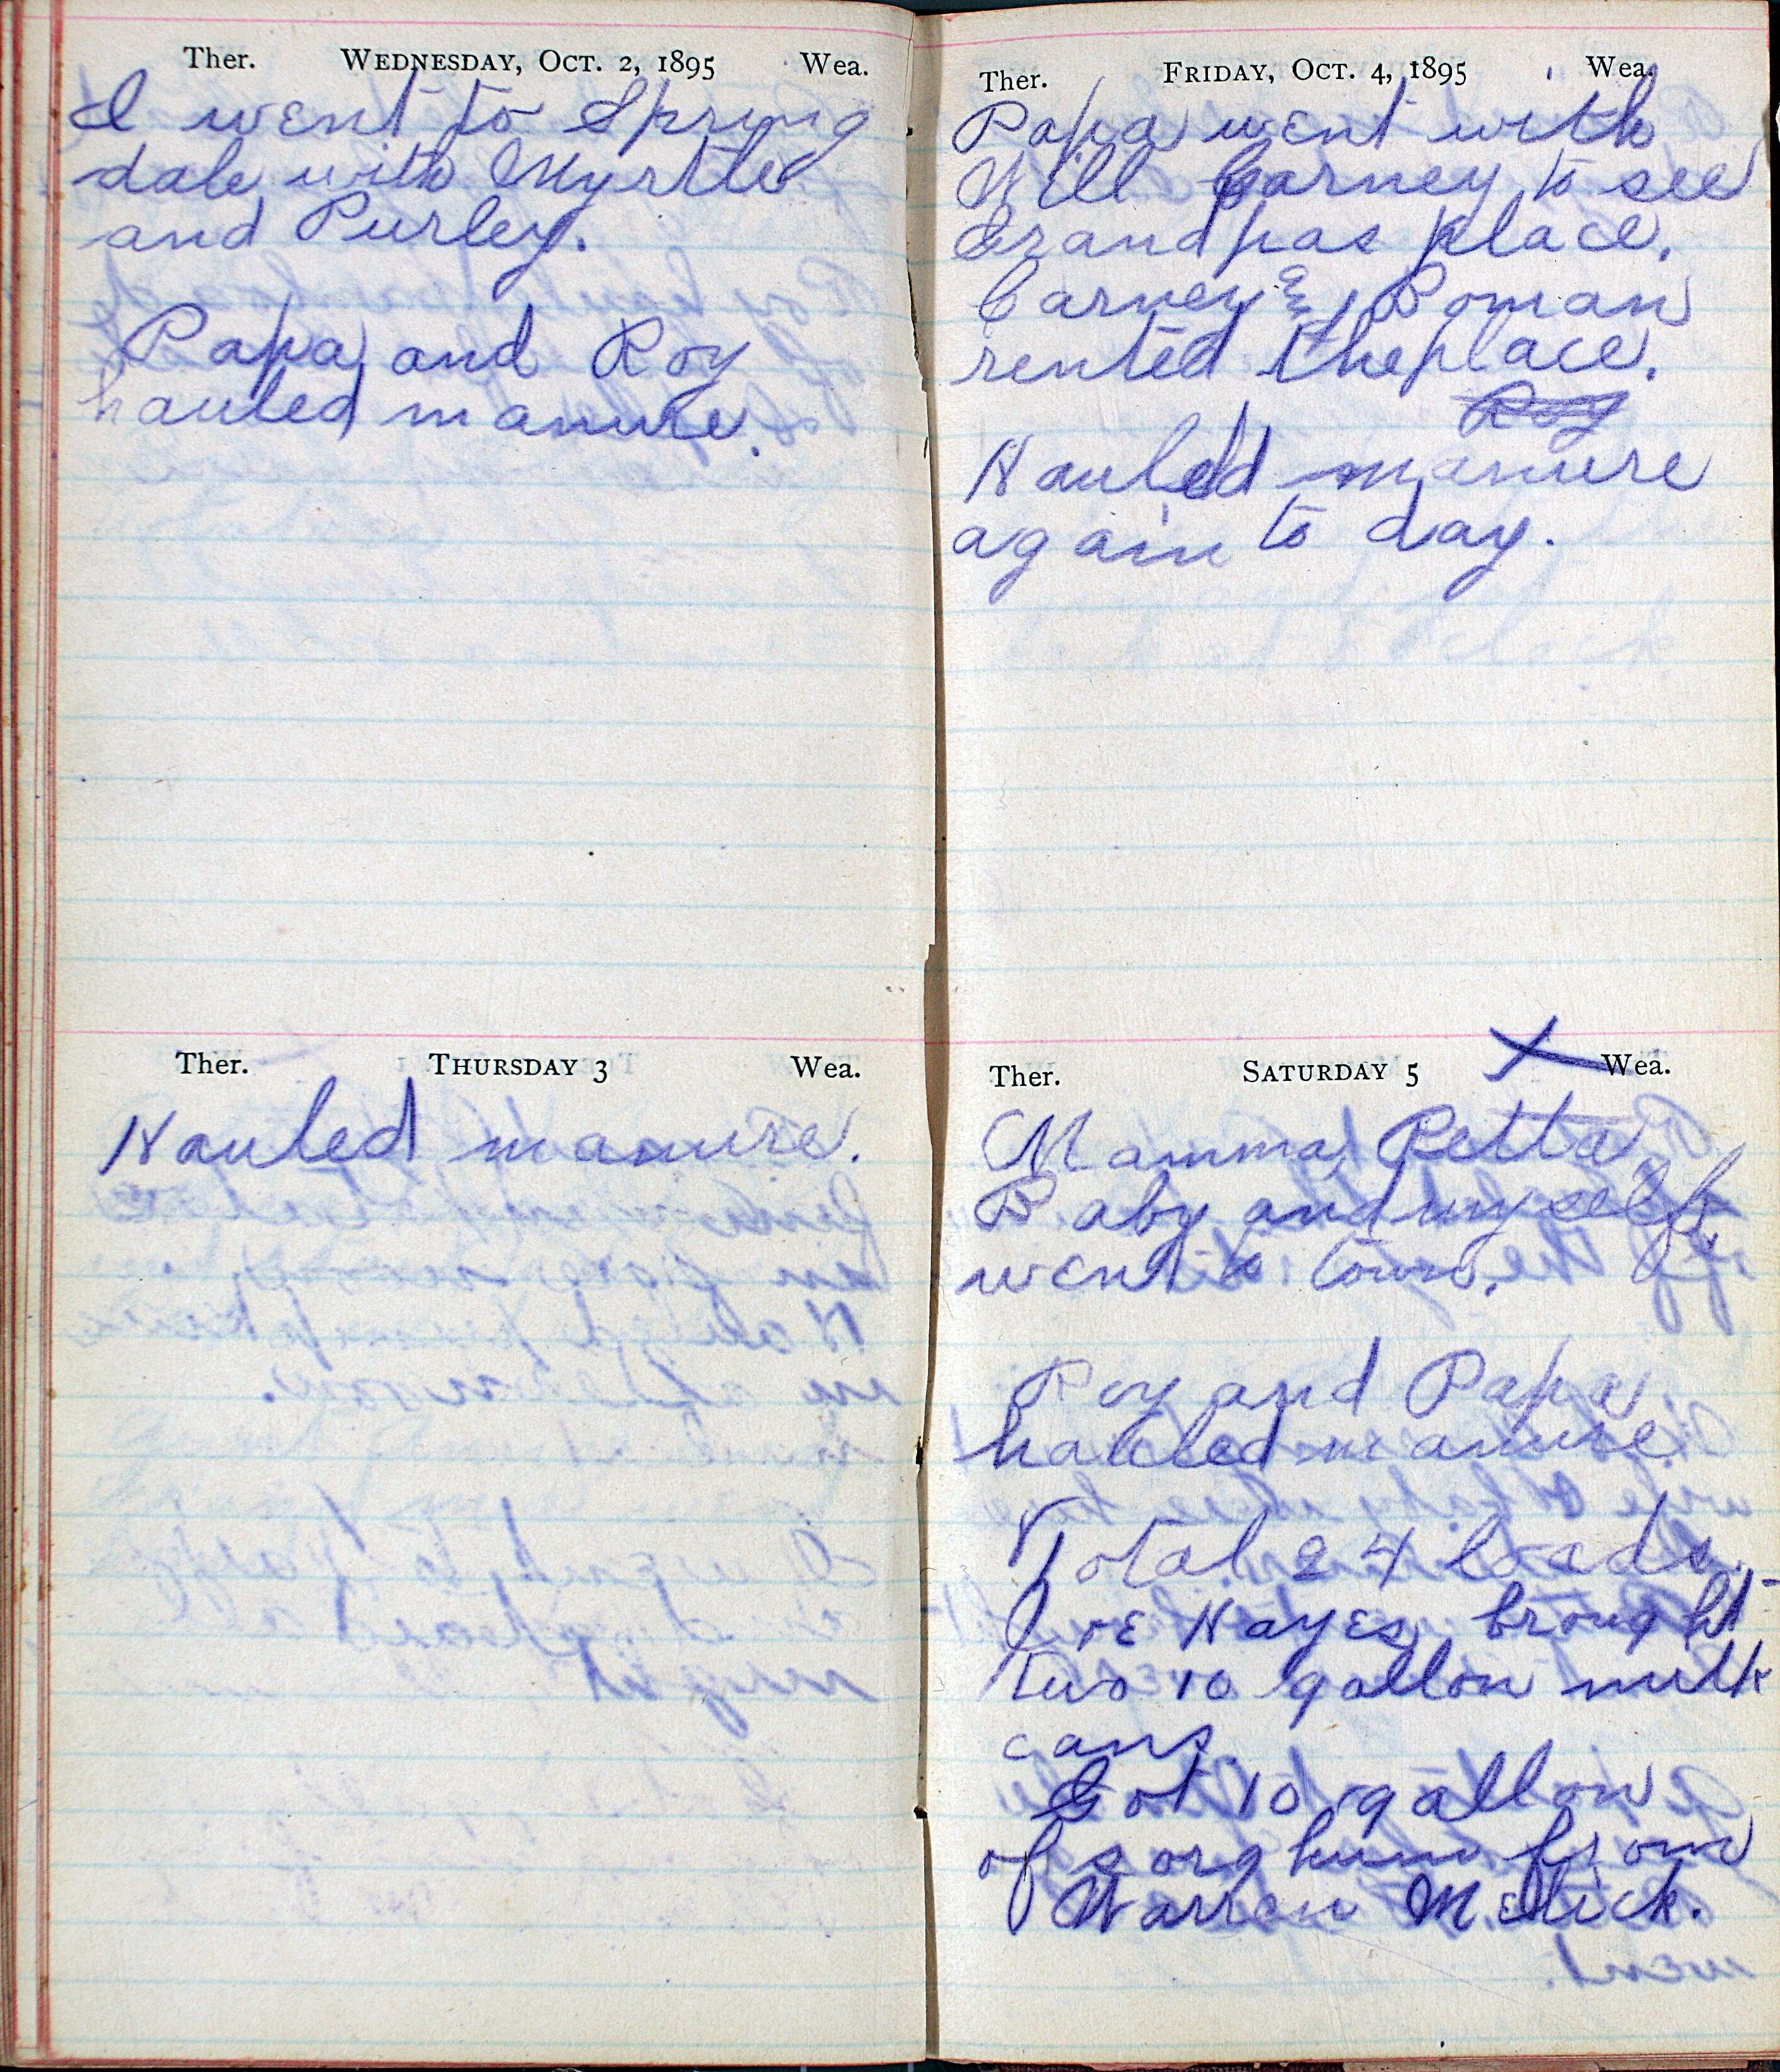 Ther. WEDNESDAY, OCT. 2, 1895 Wea.
I went to Spring
dale with Myrtle
and Purley.
Papa and Roy
hauled manure.
Ther. THURSDAY 3 Wea.
Hauled manure.
Ther. FRIDAY, OCT. 4, 1895 Wea.
Papa went with
Will Carney to see
Grandpas place.
Carney & Roman
rented the place.
Roy
Hauled manure
again to day.
Ther. SATURDAY 5 X Wea.
Mamma, Retta
Baby and myself
went to town.
Roy and Papa
hauled manure
Total 24 loads.
Joe Hayes brought
two 10 gallon milk
cans.
Got 10 gallon
of sorghum from
Warren Melick.